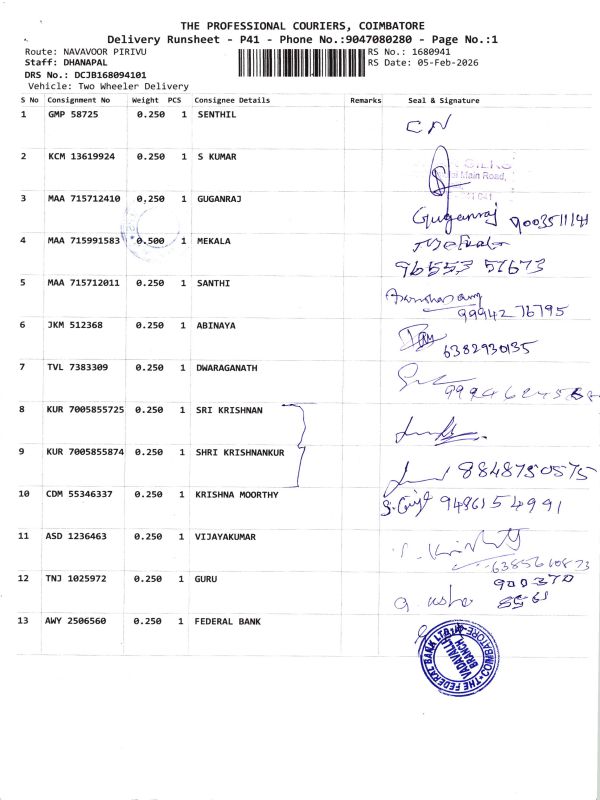 THE PROFESSIONAL COURIERS, COIMBATORE
Delivery Runsheet - P41 - Phone No.:9047080280 - Page No.:1
Route: NAVAVOOR PIRIVU RS No.: 1680941
Staff: DHANAPAL RS Date: 05-Feb-2026
DRS No.: DCJB168094101
Vehicle: Two Wheeler Delivery
S No Consignment No Weight PCS Consignee Details Remarks Seal & Signature
1 GMP 58725 0.250 1 SENTHIL
CN
2 KCM 13619924 0.250 1 S KUMAR
Main Road,
3 MAA 715712410 0.250 1 GUGANRAJ
Guganraj 9003511141
4 MAA 715991583 0.500 1 MEKALA
Mekala
96553 51673
5 MAA 715712011 0.250 1 SANTHI
99942 76795
6 JKM 512368 0.250 1 ABINAYA
6382930135
7 TVL 7383309 0.250 1 DWARAGANATH
8 KUR 7005855725 0.250 1 SRI KRISHNAN
9 KUR 7005855874 0.250 1 SHRI KRISHNANKUR
8848750575
10 CDM 55346337 0.250 1 KRISHNA MOORTHY
9486154991
11 ASD 1236463 0.250 1 VIJAYAKUMAR
6385610873
12 TNJ 1025972 0.250 1 GURU
900370
8561
13 AWY 2506560 0.250 1 FEDERAL BANK
THE FEDERAL BANK LTD
VADAVALLI
BRANCH
COIMBATORE